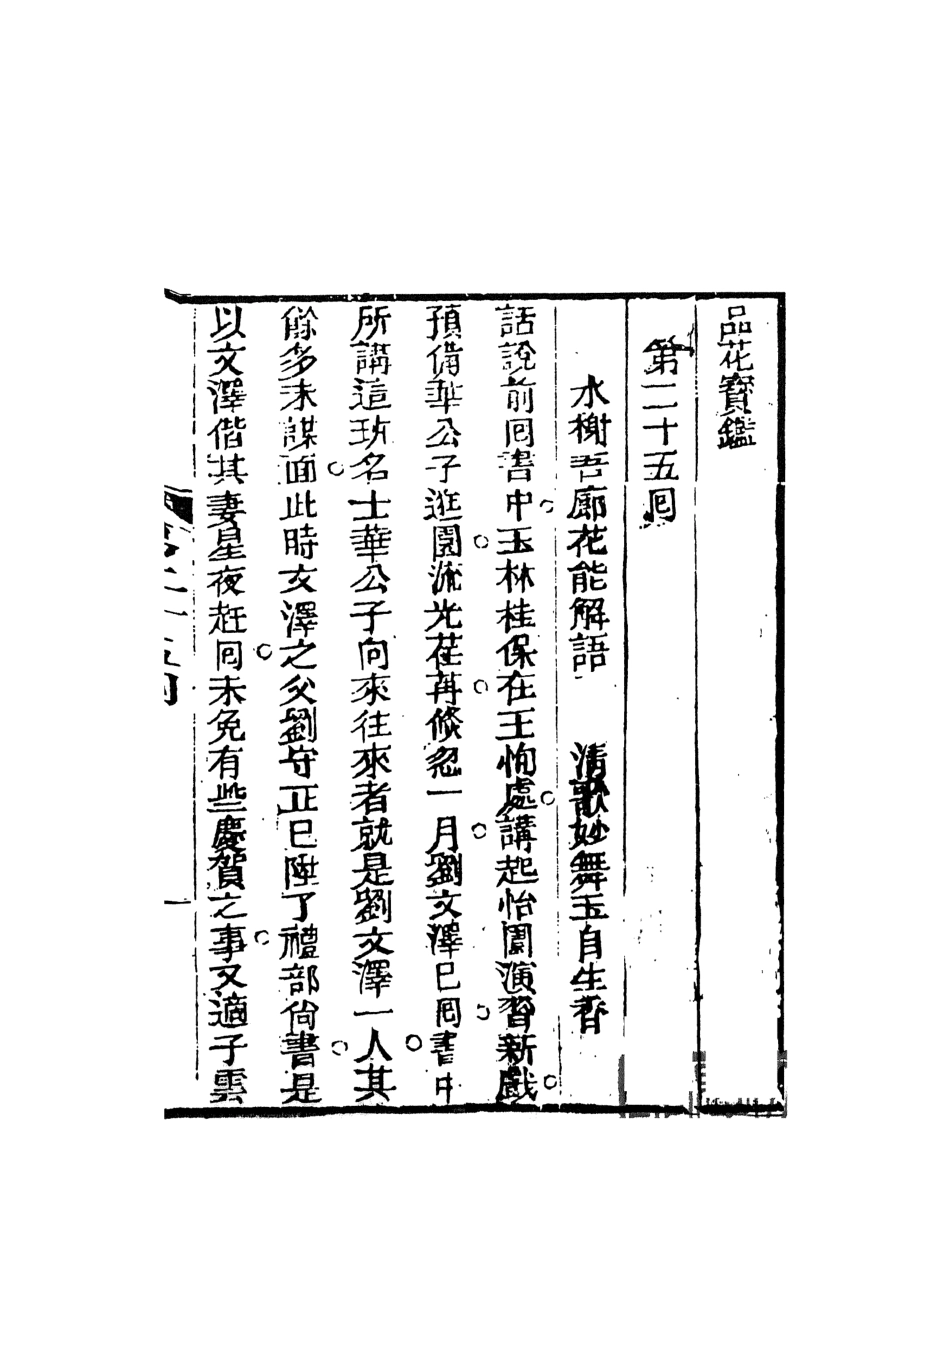 品花寶鑑
第二十五囘
水榭吾廊花能解語　淸歌妙舞玉自生香
話說前囘書中。玉林桂保在王恂處。講起怡園演習新戲。
預備華公子逛園。流光荏苒。倐忽一月。劉文澤已囘。書中
所講這班名士。華公子向來往來者。就是劉文澤一人。其
餘多未謀面。此時文澤之父劉守正。已陞了禮部尙書。是
以文澤偕其妻星夜赶囘。未免有些慶賀之事。又適子雲